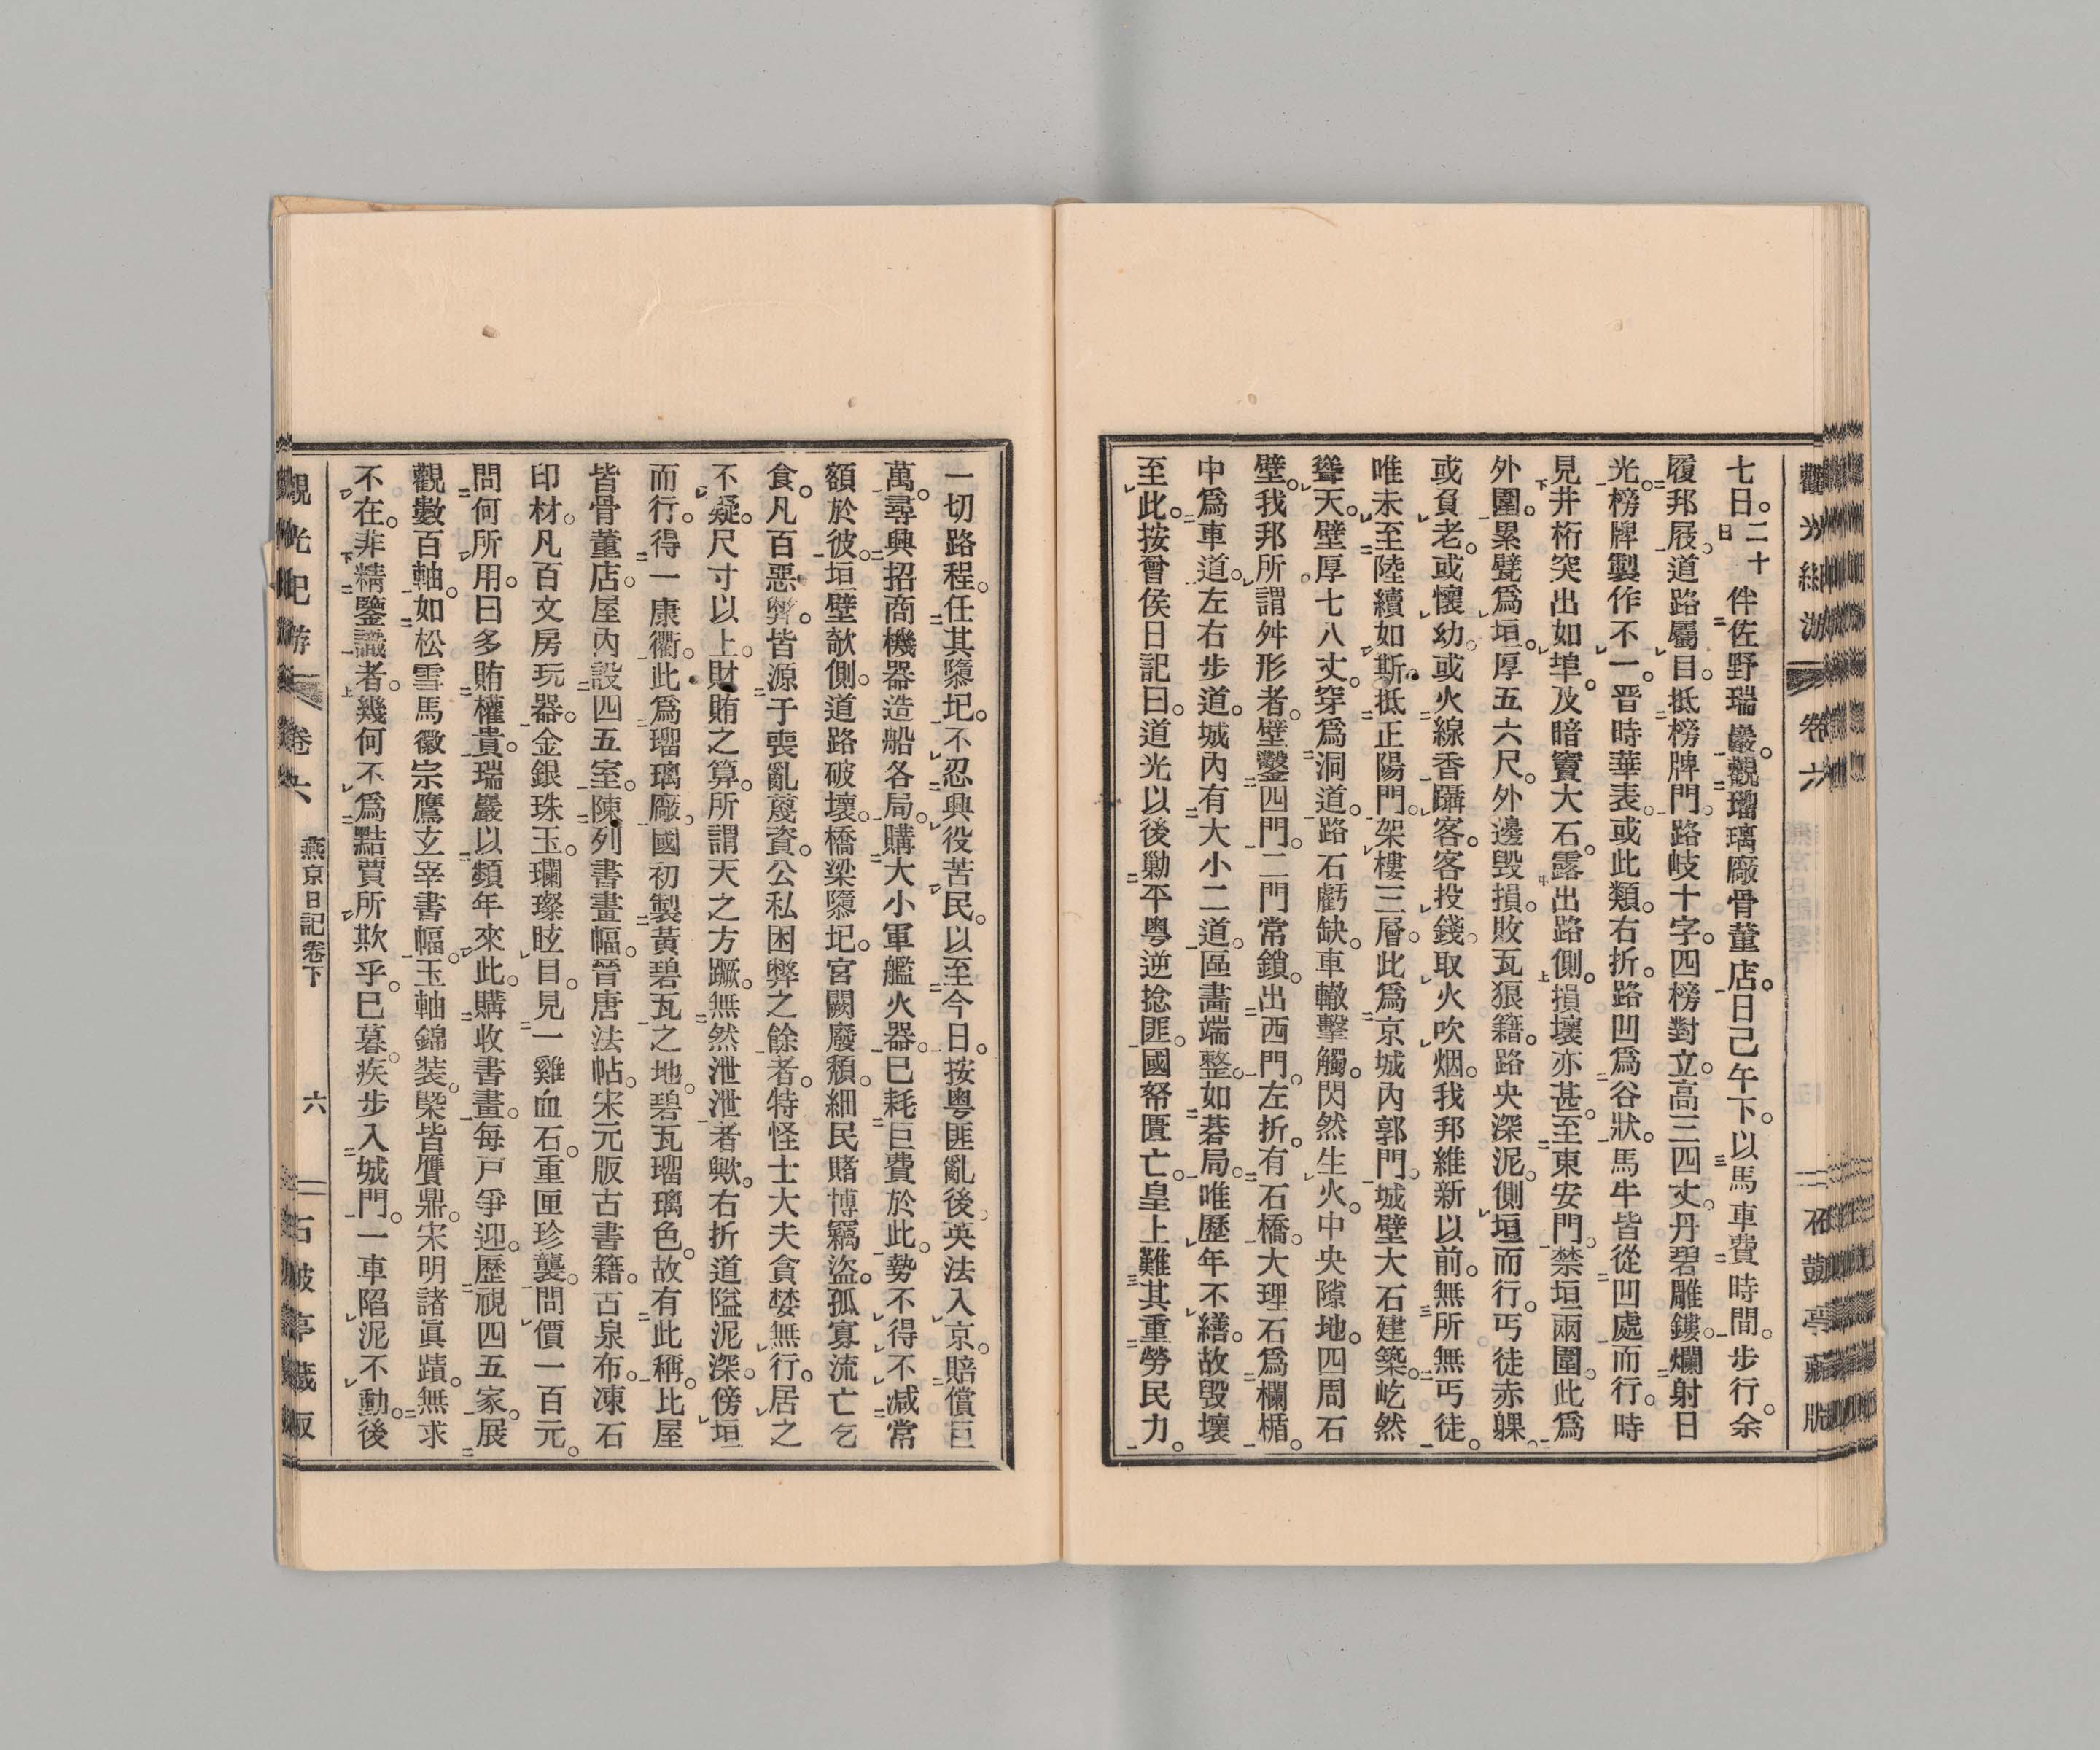 七日。二十日伴佐野瑞巖。觀瑠璃廠骨董店。日已午下。以馬車費時間。步行。余
履邦屐。道路屬目。抵榜牌門。路岐十字。四榜對立。高三四丈。丹碧雕鏤。爛射日
光。榜牌製作不一。晋時華表。或此類。右折。路凹爲谷狀。馬牛皆從凹處而行。時
見井桁突出如埠。及暗竇大石。露出路側。損壞亦甚。至東安門。禁垣兩圍。此爲
外圍。累甓爲垣。厚五六尺。外邊毁損。敗瓦狼籍。路央深泥。側垣而行。丐徒赤躶
或負老。或懷幼。或火線香躡客。客投錢。取火吹烟。我邦維新以前。無所無丐徒。
唯未至陸續如斯。抵正陽門。架樓三層。此爲京城內郭門。城壁大石建築。屹然
聳天。壁厚七八丈。穿爲洞道。路石虧缺。車轍擊觸。閃然生火。中央隙地。四周石
壁。我邦所謂舛形者。壁鑿四門。二門常鎖。出西門。左折。有石橋。大理石爲欄楯。
中爲車道。左右步道。城內有大小二道。區畵端整。如碁局。唯歷年不繕。故毁壞
至此。按曾侯日記曰。道光以後勦平粵逆捻匪。國帑匱亡。皇上難其重勞民力。
一切路程。任其隳圮。不忍興役苦民。以至今日。按粵匪亂後。英法入京。賠償巨
萬。尋興招商機器造船各局。購大小軍艦火器。已耗巨費於此。勢不得不減常
額於彼。垣壁欹側。道路破壞。橋梁隳圮。宮闕廢頹。細民賭博竊盜。孤寡流亡乞
食。凡百惡弊。皆源于喪亂蔑資。公私困弊之餘者。特怪士大夫貪婪無行。居之
不疑。尺寸以上。財賄之算。所謂天之方蹶。無然泄泄者歟。右折道隘泥深。傍垣
而行。得一康衢。此爲瑠璃廠。國初製黃碧瓦之地。碧瓦瑠璃色。故有此稱。比屋
皆骨董店。屋內設四五室。陳列書畫幅。晉唐法帖。宋元版古書籍。古泉布。凍石
印材。凡百文房玩器。金銀珠玉。瓓璨眩目。見一雞血石。重匣珍襲。問價一百元。
問何所用。曰多賄權貴。瑞巖以頻年來此。購收書畫。每戶爭迎。歷視四五家。展
觀數百軸。如松雪馬徽宗鷹玄宰書幅。玉軸錦裝。槩皆贋鼎。宋明諸眞蹟。無求
不在。非精鑒識者。幾何不爲黠賈所欺乎。已暮。疾步入城門。一車陷泥不動。後
燕京日記卷下
六